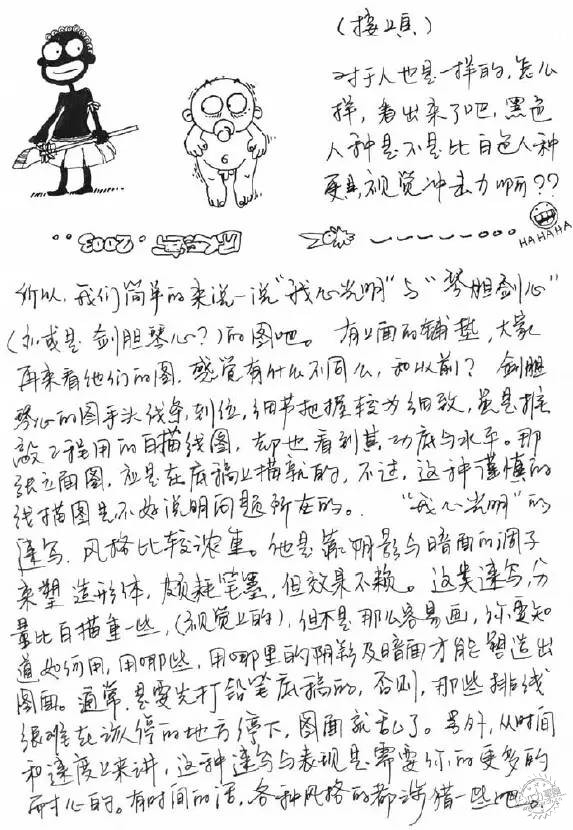 （接上頁）
对于人也是一样的，怎么
样，看出来了吧，黑色
人种是不是比白色人种
更具视觉冲击力啊？？
2003
HAHAHA
所以，我们简单的来说一说“我心光明”与“琴胆剑心”
（抑或是剑胆琴心？）的图吧。有上面的铺垫，大家
再来看他们的图，感觉有什么不同么，和以前？剑胆
琴心的图手头线条到位，细节把握较为细致，虽是推
敲工程用的白描线图，却也看到其功底与水平。那
张立面图，应是在底稿上描就的，不过，这种谨慎的
线描图是不好说明问题所在的。“我心光明”的
速写，风格比较浓重。他是靠阴影与暗面的调子
来塑造形体，颇耗笔墨，但效果不赖。这类速写，分
量比白描重一些，（视觉上的），但不是那么容易画，你要知
道如何用，用哪些，用哪里的阴影及暗面才能塑造出
图面。通常是要先打铅笔底稿的，否则，那些排线
很难在该停的地方停下，图面就乱了。另外，从时间
和速度上来讲，这种速写与表现是需要你的更多的
耐心的。有时间的话，各种风格的都涉猎一些吧。